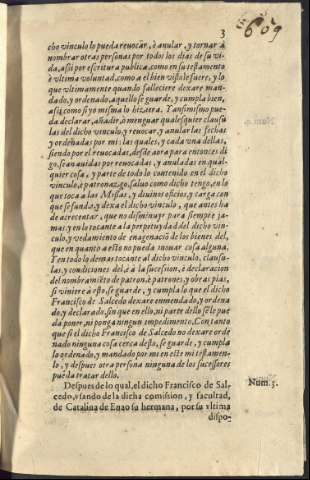 3
609
cho vinculo lo pueda reuocar, ò anular, y tornar à
nombrar otras personas por todos los dias de su vi-
da, assi por escritura publica, como en su testamento
ò vltima voluntad, como a el bien visto le fuere, y lo
que vltimamente quando falleciere dexare man-
dado, y ordenado, aquello se guarde, y cumpla bien,
assi, como si yo mismo lo hiziera. Y ansimismo pue-
da declarar, añadir, ò menguar qualesquier clausu
las del dicho vinculo, y reuocar, y anular las fechas
y ordenadas por mi, las quales, y cada vna dellas,
siendo por el reuocadas, desde aora para entonces di
go, sean auidas por reuocadas, y anuladas en qual-
quier cosa, y parte de todo lo contenido en el dicho
vinculo, ò patronazgo, saluo como dicho tengo, en lo
que toca a las Missas, y diuinos oficios, y carga con
que se funda, y dexa el dicho vinculo, que antes ha
de acrecentar, que no disminuyr para siempre ja-
mas, y en lo tocante a la perpetuydad del dicho vin-
culo, y vedamiento de enagenaciō de los bienes del,
que en quanto a esto no pueda inouar cosa alguna.
Y en todo lo demas tocante al dicho vinculo, clausu-
las, y condiciones del, è à la sucession, è declaracion
del nombramiēto de patron, è patrones, y obras pias,
si viniere à esto, se guarde, y cumpla lo que el dicho
Francisco de Salcedo dexare enmendado, y ordena
do, y declarado, sin que en ello, ni parte dello se lo pue
da poner, ni ponga ningun impedimento. Con tanto
que si el dicho Francisco de Salcedo no dexare orde
nado ninguna cosa cerca desto, se guarde, y cumpla
lo ordenado, y mandado por mi en este mi testamen-
to, y despues otra persona ninguna de los sucessores
pueda tratar dello.
Despues de lo qual, el dicho Francisco de Sal-
cedo, vsando de la dicha comission, y facultad,
de Catalina de Enao su hermana, por su vltima
dispo-
Num. 5.